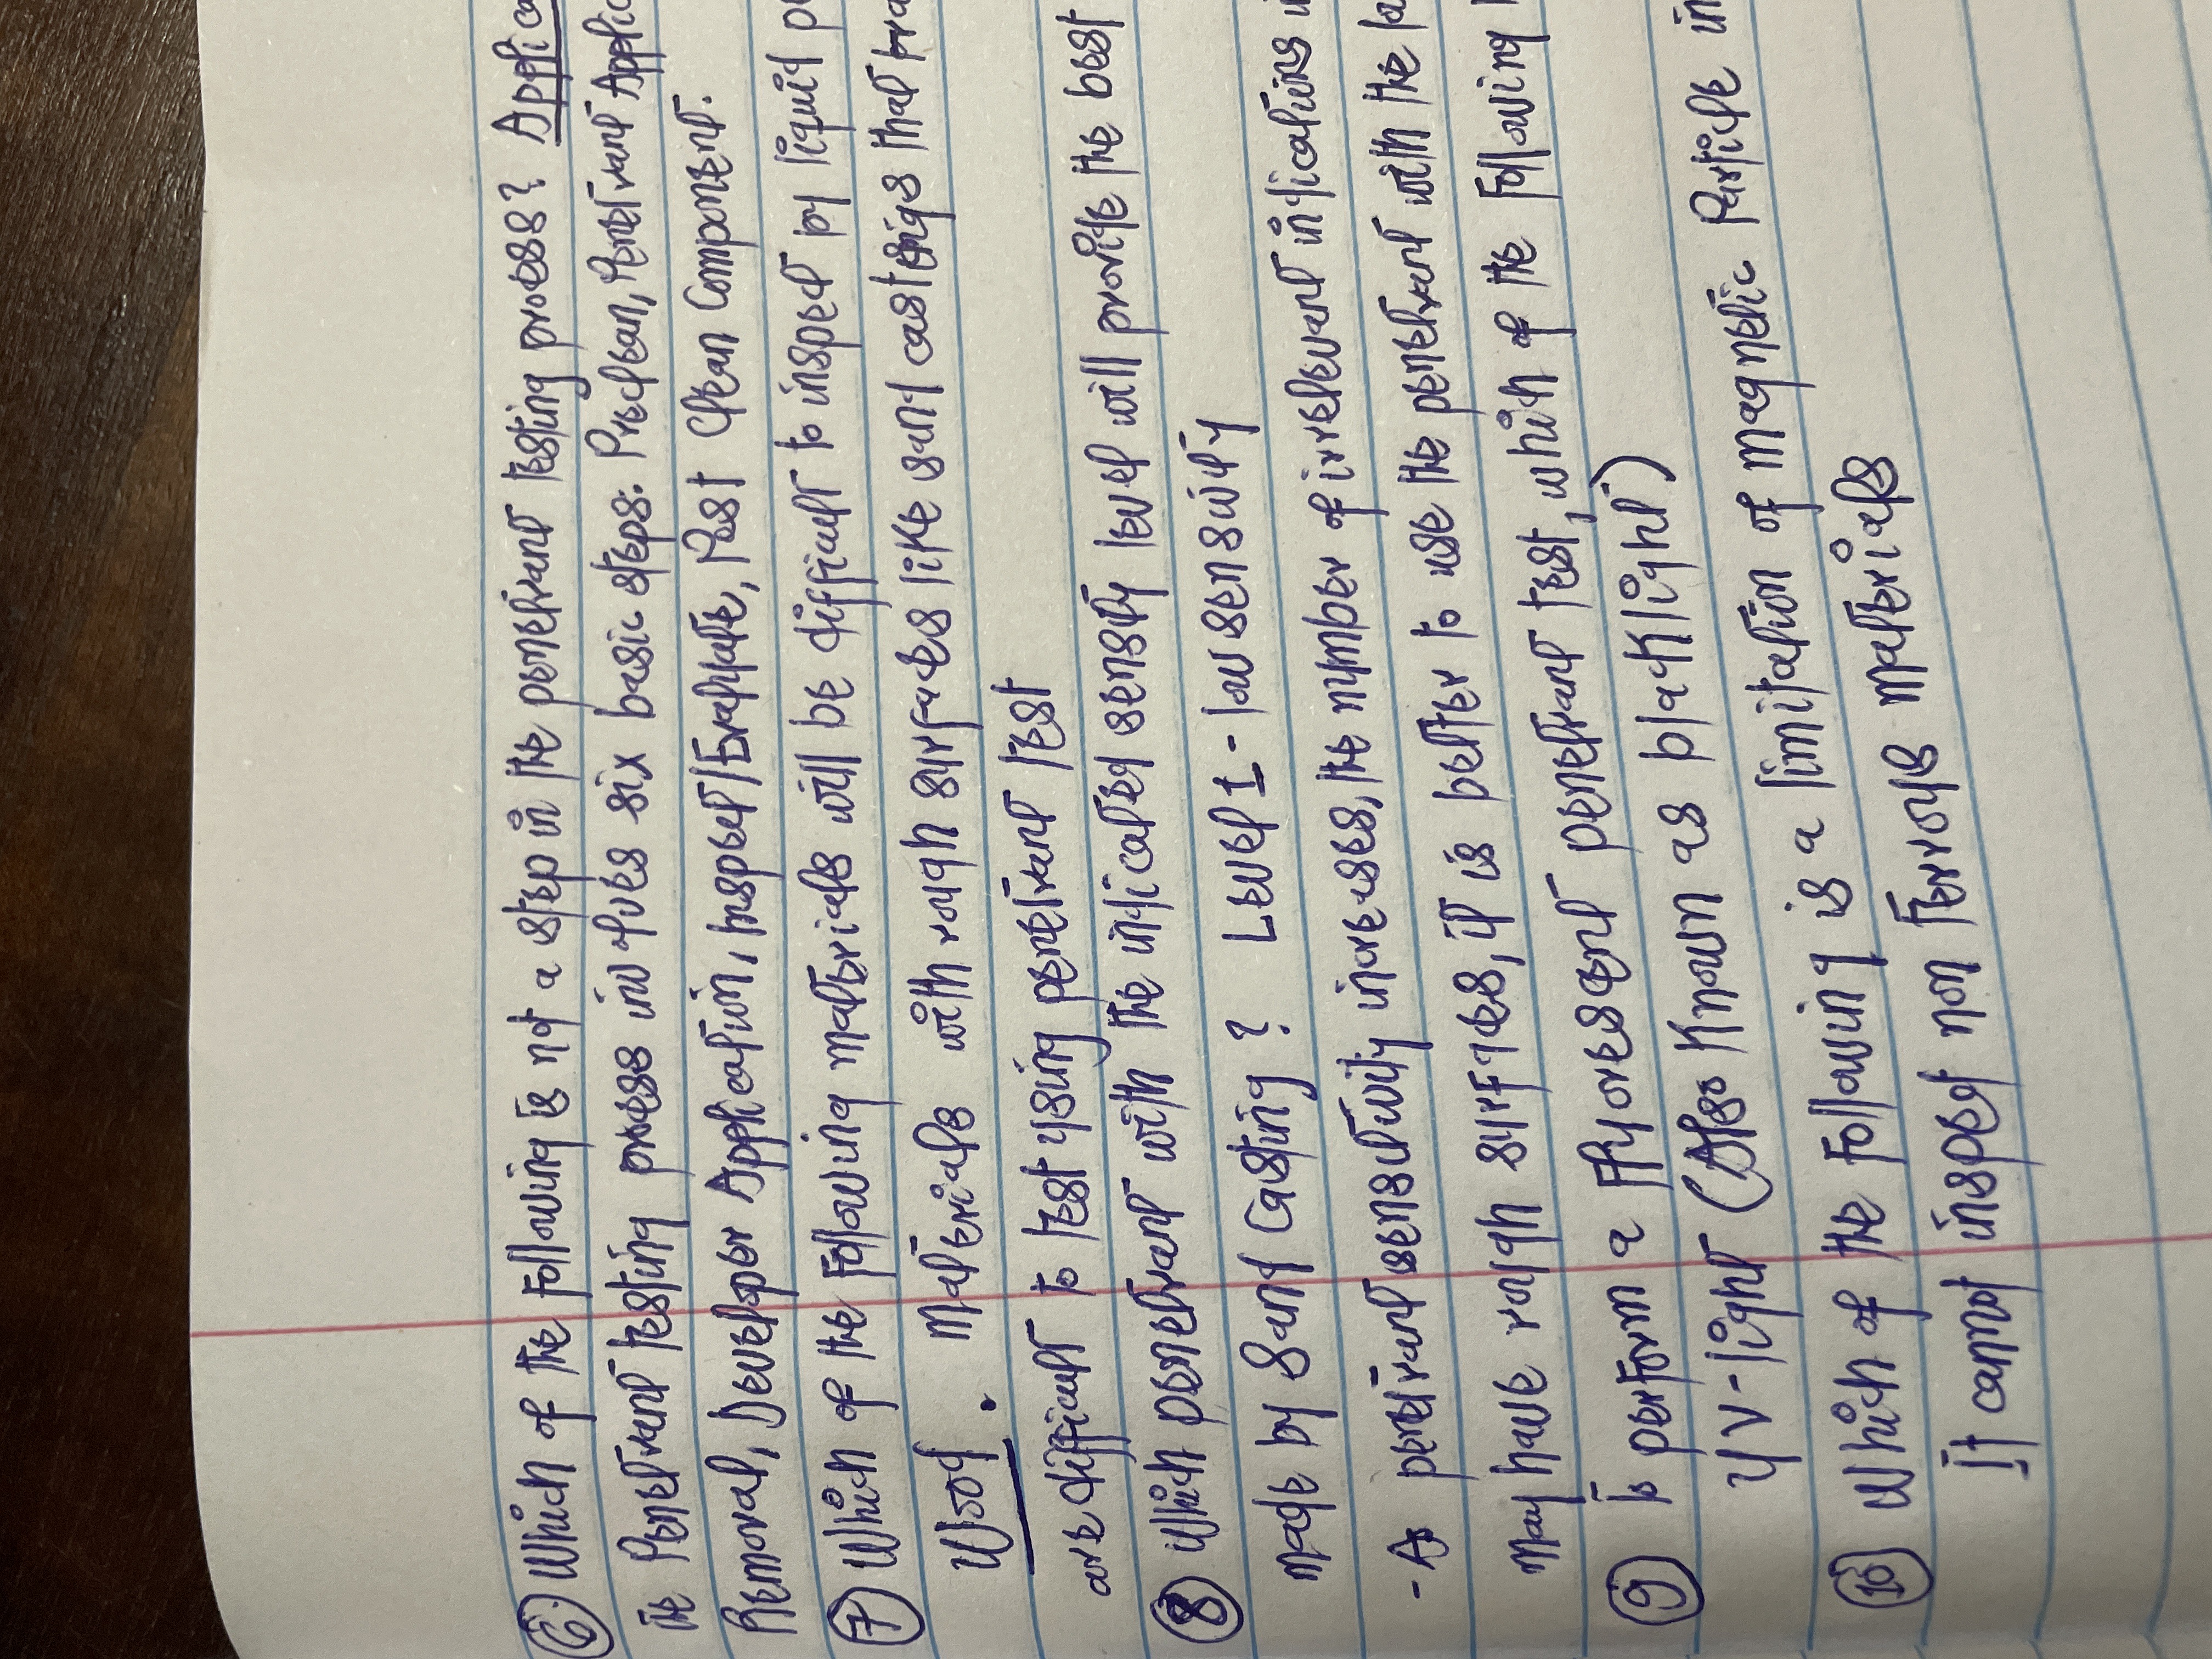 ⑥ Which of the following is not a step in the penetrant testing process? Applica
the Penetrant testing process involves six basic steps: Preclean, Penetrant Applic
Removal, Developer Application, Inspect/Evaluate, Post Clean Component.
⑦ Which of the following materials will be difficult to inspect by liquid p
Wood. Materials with rough surfaces like sand castings that tra
are difficult to test using penetrant test
⑧ Which penetrant with the indicated sensitity level will provide the best
made by Sand Casting? Level I - low sensitivity
- As penetrant sensitivity increases, the number of irrelevant indications in
may have rough surfaces, it is better to use the penetrant with the lo
⑨ to perform a flyorescent penetrant test, which of the following
UV-light (Also Known as blacklight)
⑩ Which of the following is a limitation of magnetic Particle in
It cannot inspect non ferrous materials